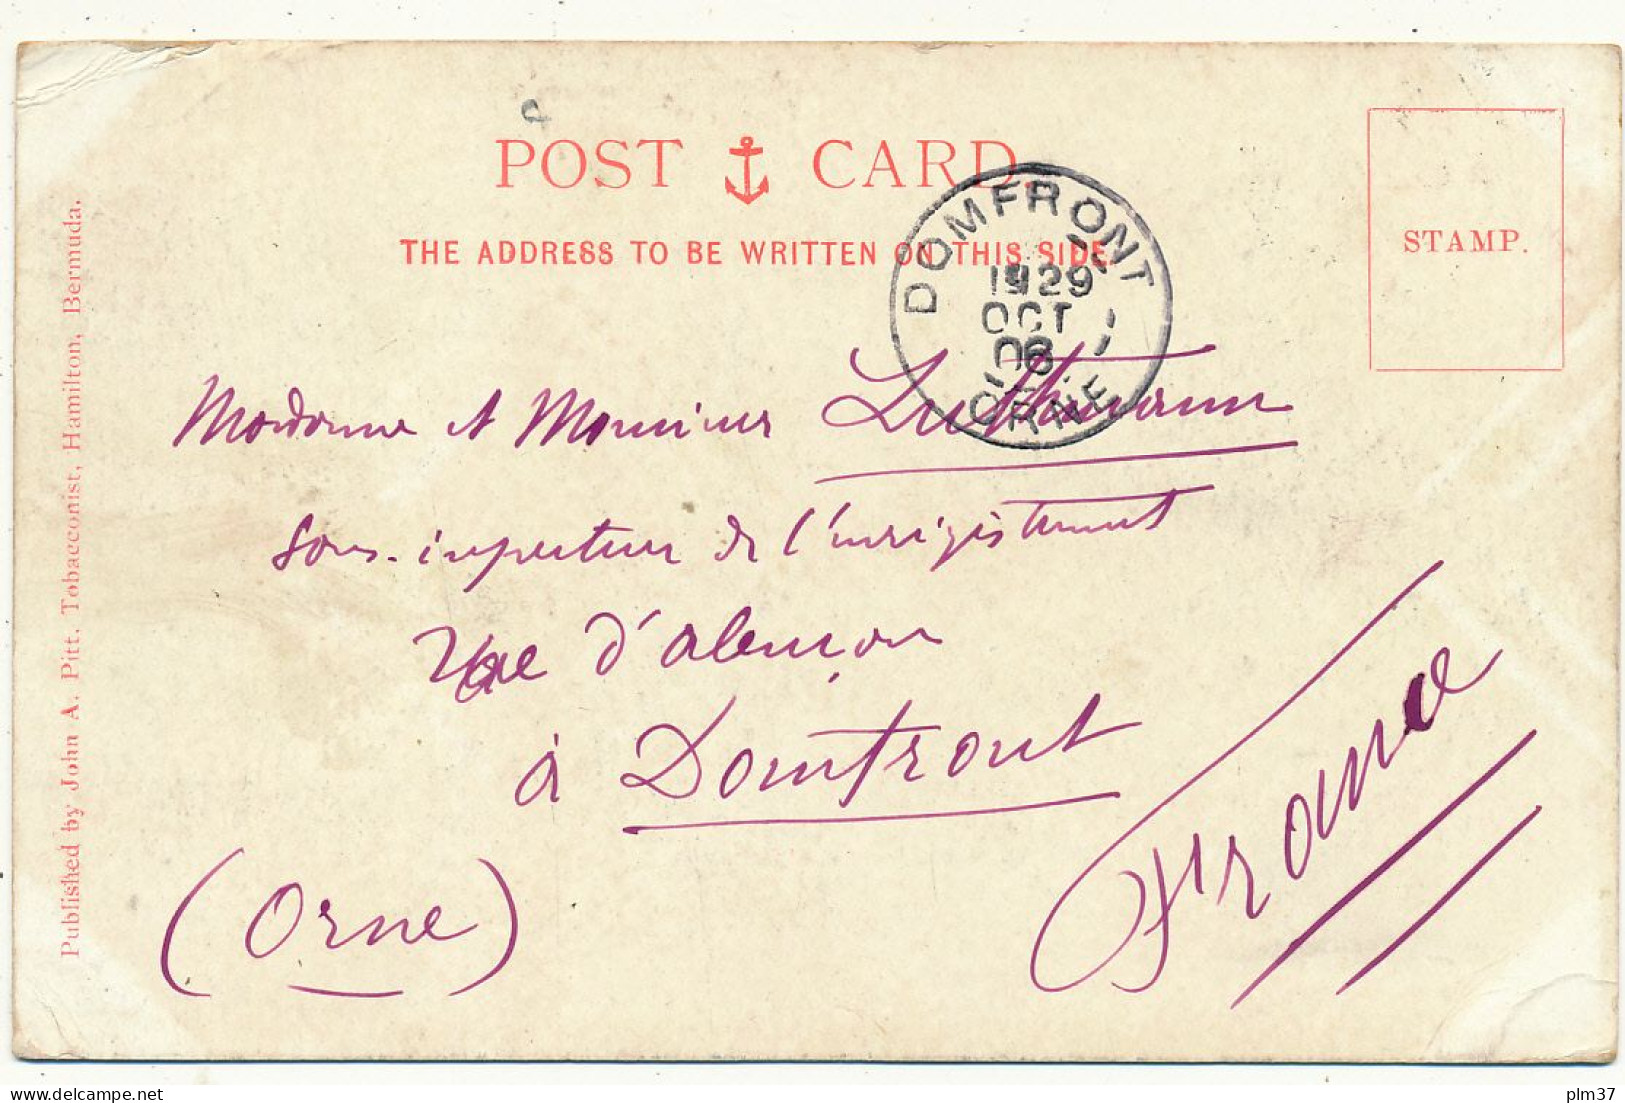 POST CARD.
THE ADDRESS TO BE WRITTEN ON THIS SIDE.
STAMP.
DOMFRONT
OCT
06
ORNE
Madame et Monsieur
Sous-inspecteur de l'enregistrement
Rue d'alençon
à Domfront
(Orne)
France
Published by John A. Pitt, Tobacconist, Hamilton, Bermuda.
plm37